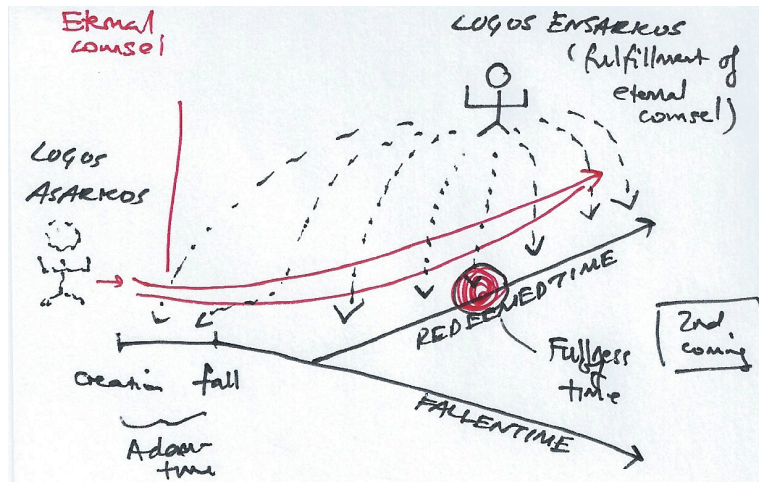 Eternal
counsel
LOGOS ENSARKOS
(fulfillment of
eternal
counsel)
LOGOS
ASARKOS
REDEEMED TIME
Fullness
of
time
2nd
coming
creation fall
Adam
time
FALLEN TIME